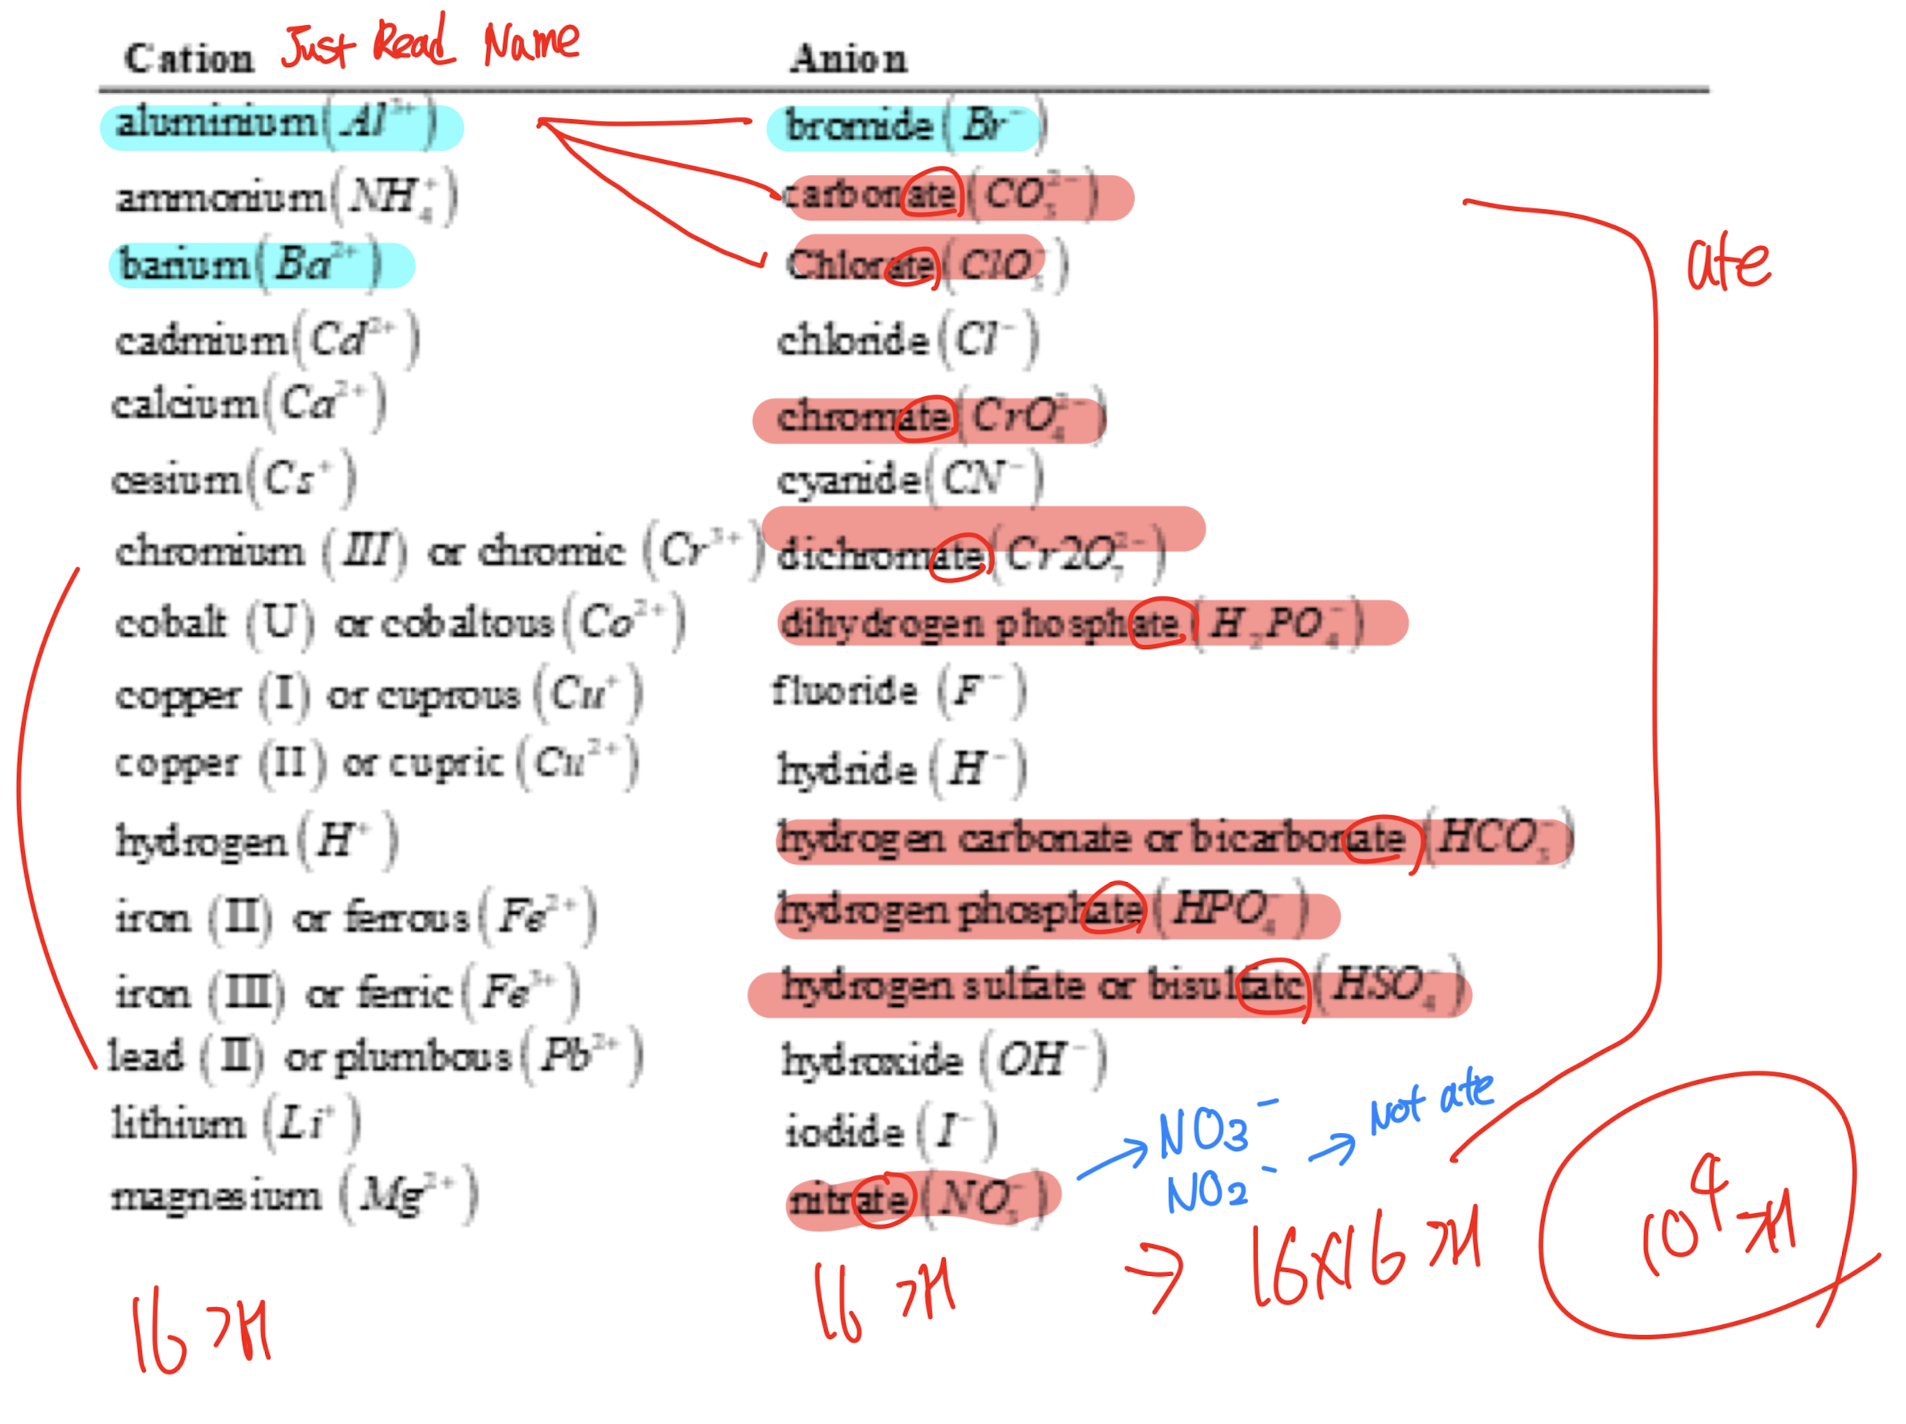 Cation Just Read Name Anion
aluminium (Al³⁺) bromide (Br⁻)
ammonium (NH₄⁺) carbonate (CO₃²⁻)
barium (Ba²⁺) Chlorate (ClO₃⁻)
ate
cadmium (Cd²⁺) chloride (Cl⁻)
calcium (Ca²⁺) chromate (CrO₄²⁻)
cesium (Cs⁺) cyanide (CN⁻)
chromium (III) or chromic (Cr³⁺) dichromate (Cr2O₇²⁻)
cobalt (U) or cobaltous (Co²⁺) dihydrogen phosphate (H₂PO₄⁻)
copper (I) or cuprous (Cu⁺) fluoride (F⁻)
copper (II) or cupric (Cu²⁺) hydride (H⁻)
hydrogen (H⁺) hydrogen carbonate or bicarbonate (HCO₃⁻)
iron (II) or ferrous (Fe²⁺) hydrogen phosphate (HPO₄⁻)
iron (III) or ferric (Fe³⁺) hydrogen sulfate or bisulfate (HSO₄⁻)
lead (II) or plumbous (Pb²⁺) hydroxide (OH⁻)
lithium (Li⁺) iodide (I⁻) → NO3⁻ → Not ate
magnesium (Mg²⁺) nitrate (NO₃⁻) NO2⁻
16개 16개 ⇒ 16×16개 10⁴개